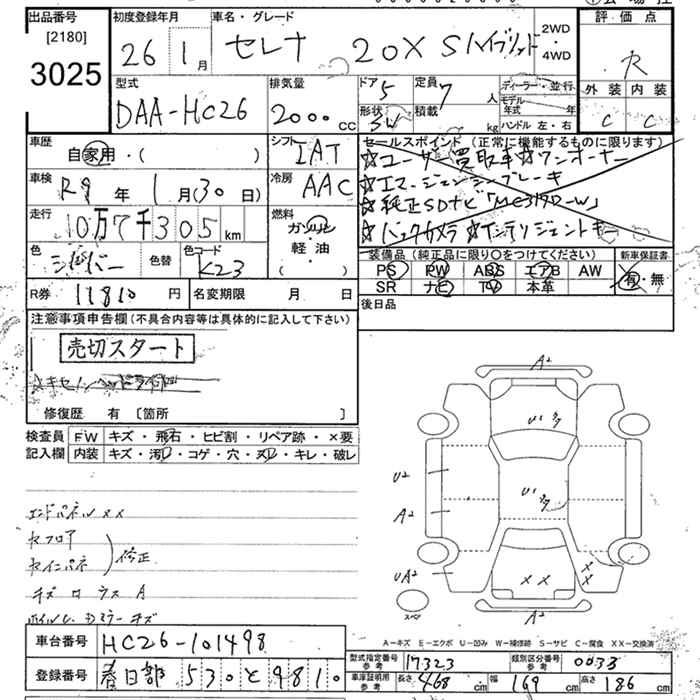 出品番号 初度登録年月 車名・グレード 評価点
[2180]
3025
26年 1月 セレナ 20X Sハイブリット 2WD・4WD R
型式 排気量 ドア 5 定員 7人 ディーラー・並行 外装 内装
DAA-HC26 2000cc 形状 SW 積載 kg モデル年式 年 ハンドル 左・右 C C
車歴 自家用・( ) シフト IAT セールスポイント (正常に機能するものに限ります)
☆ユーザー買取車☆ワンオーナー
車検 R9年 1月(30日) 冷房 AAC ☆エマージェンシーブレーキ
☆純正SDナビ「MC317D-W」
走行 10万7千305km 燃料 ガソリン・軽油 ( )
☆バックカメラ ☆インテリジェントキー
色 シルバー 色替 色コード K23
装備品 (純正品に限り○をつけてください) 新車保証書
PS PW ABS エアB AW 有・無
SR ナビ TV 本革
R券 11810円 名変期限 月 日 後日品
注意事項申告欄 (不具合内容等は具体的に記入して下さい)
売切スタート
修復歴 有 〔箇所 〕
検査員 FW キズ・飛石・ヒビ割・リペア跡・×要
記入欄 内装 キズ・汚レ・コゲ・穴・スレ・キレ・破レ
エンドパネル XX
セフロア
セインパネ 修正
キズ ロウス A
A2
U1
U2
U1
A2
UA2
XX
XX
スペア
A2
A-キズ E-エクボ U-凹み W-補修跡 S-サビ C-腐食 XX-交換済
車台番号 HC26-101498
型式指定番号 参考 17323 類別区分番号 参考 0038
登録番号 春日部 530 と 9810
車庫証明用 参考 長さ 468cm 幅 169cm 高さ 186cm